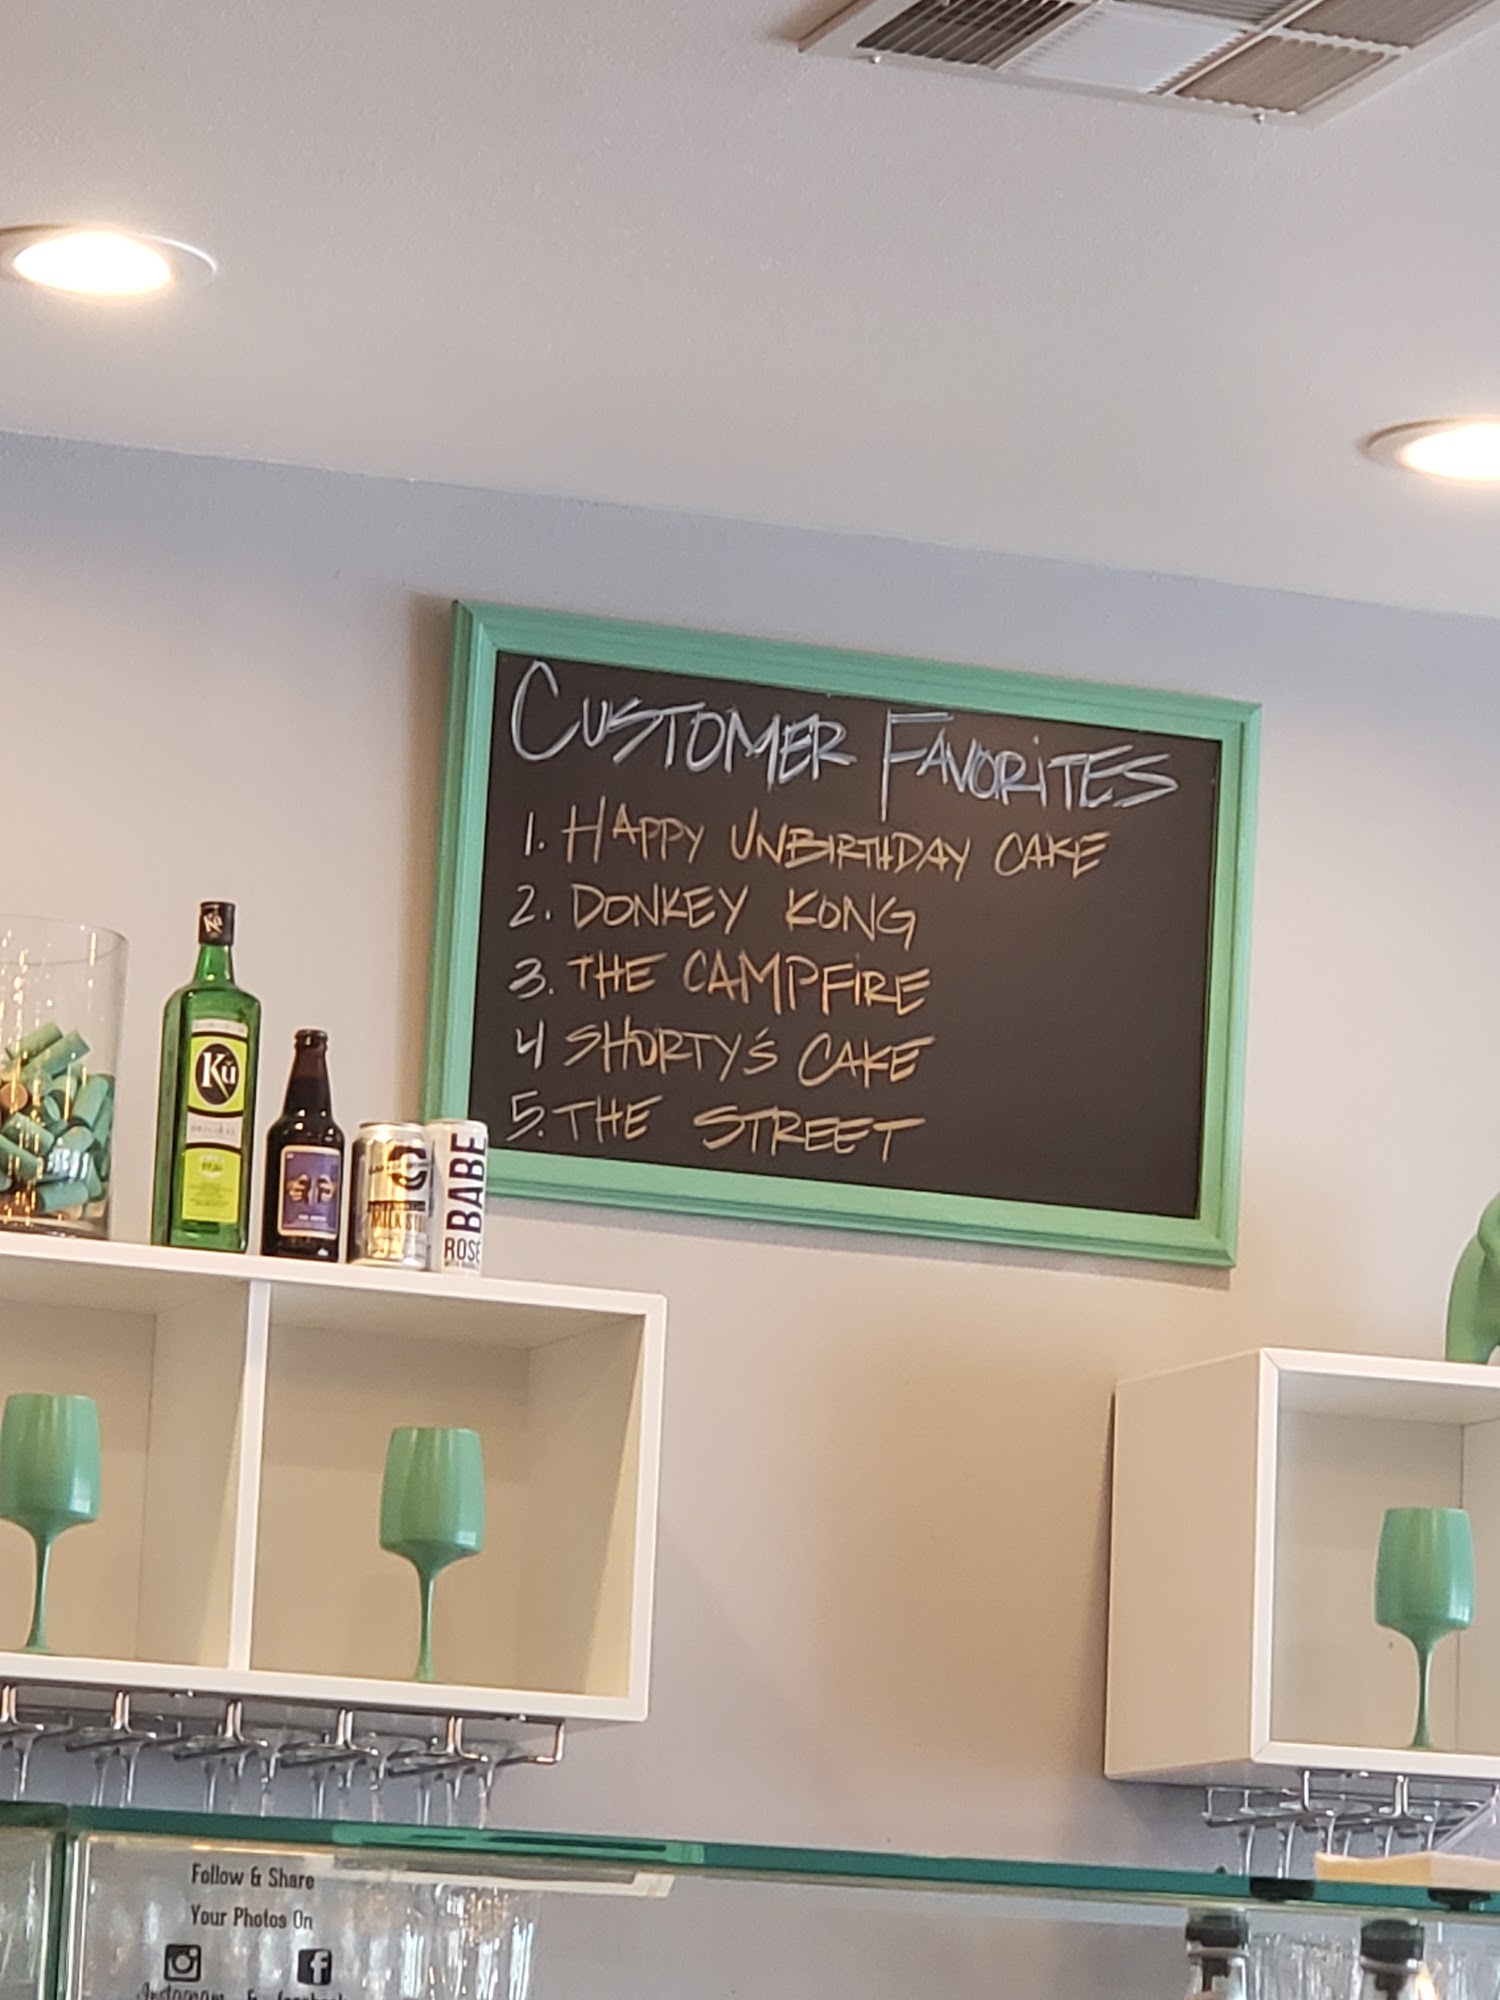 CUSTOMER FAVORITES
1. HAPPY UNBIRTHDAY CAKE
2. DONKEY KONG
3. THE CAMPFIRE
4 SHORTY'S CAKE
5. THE STREET
Kü
Kü
BABE
ROSÉ
MILK
Follow & Share
Your Photos On
Instagram & facebook